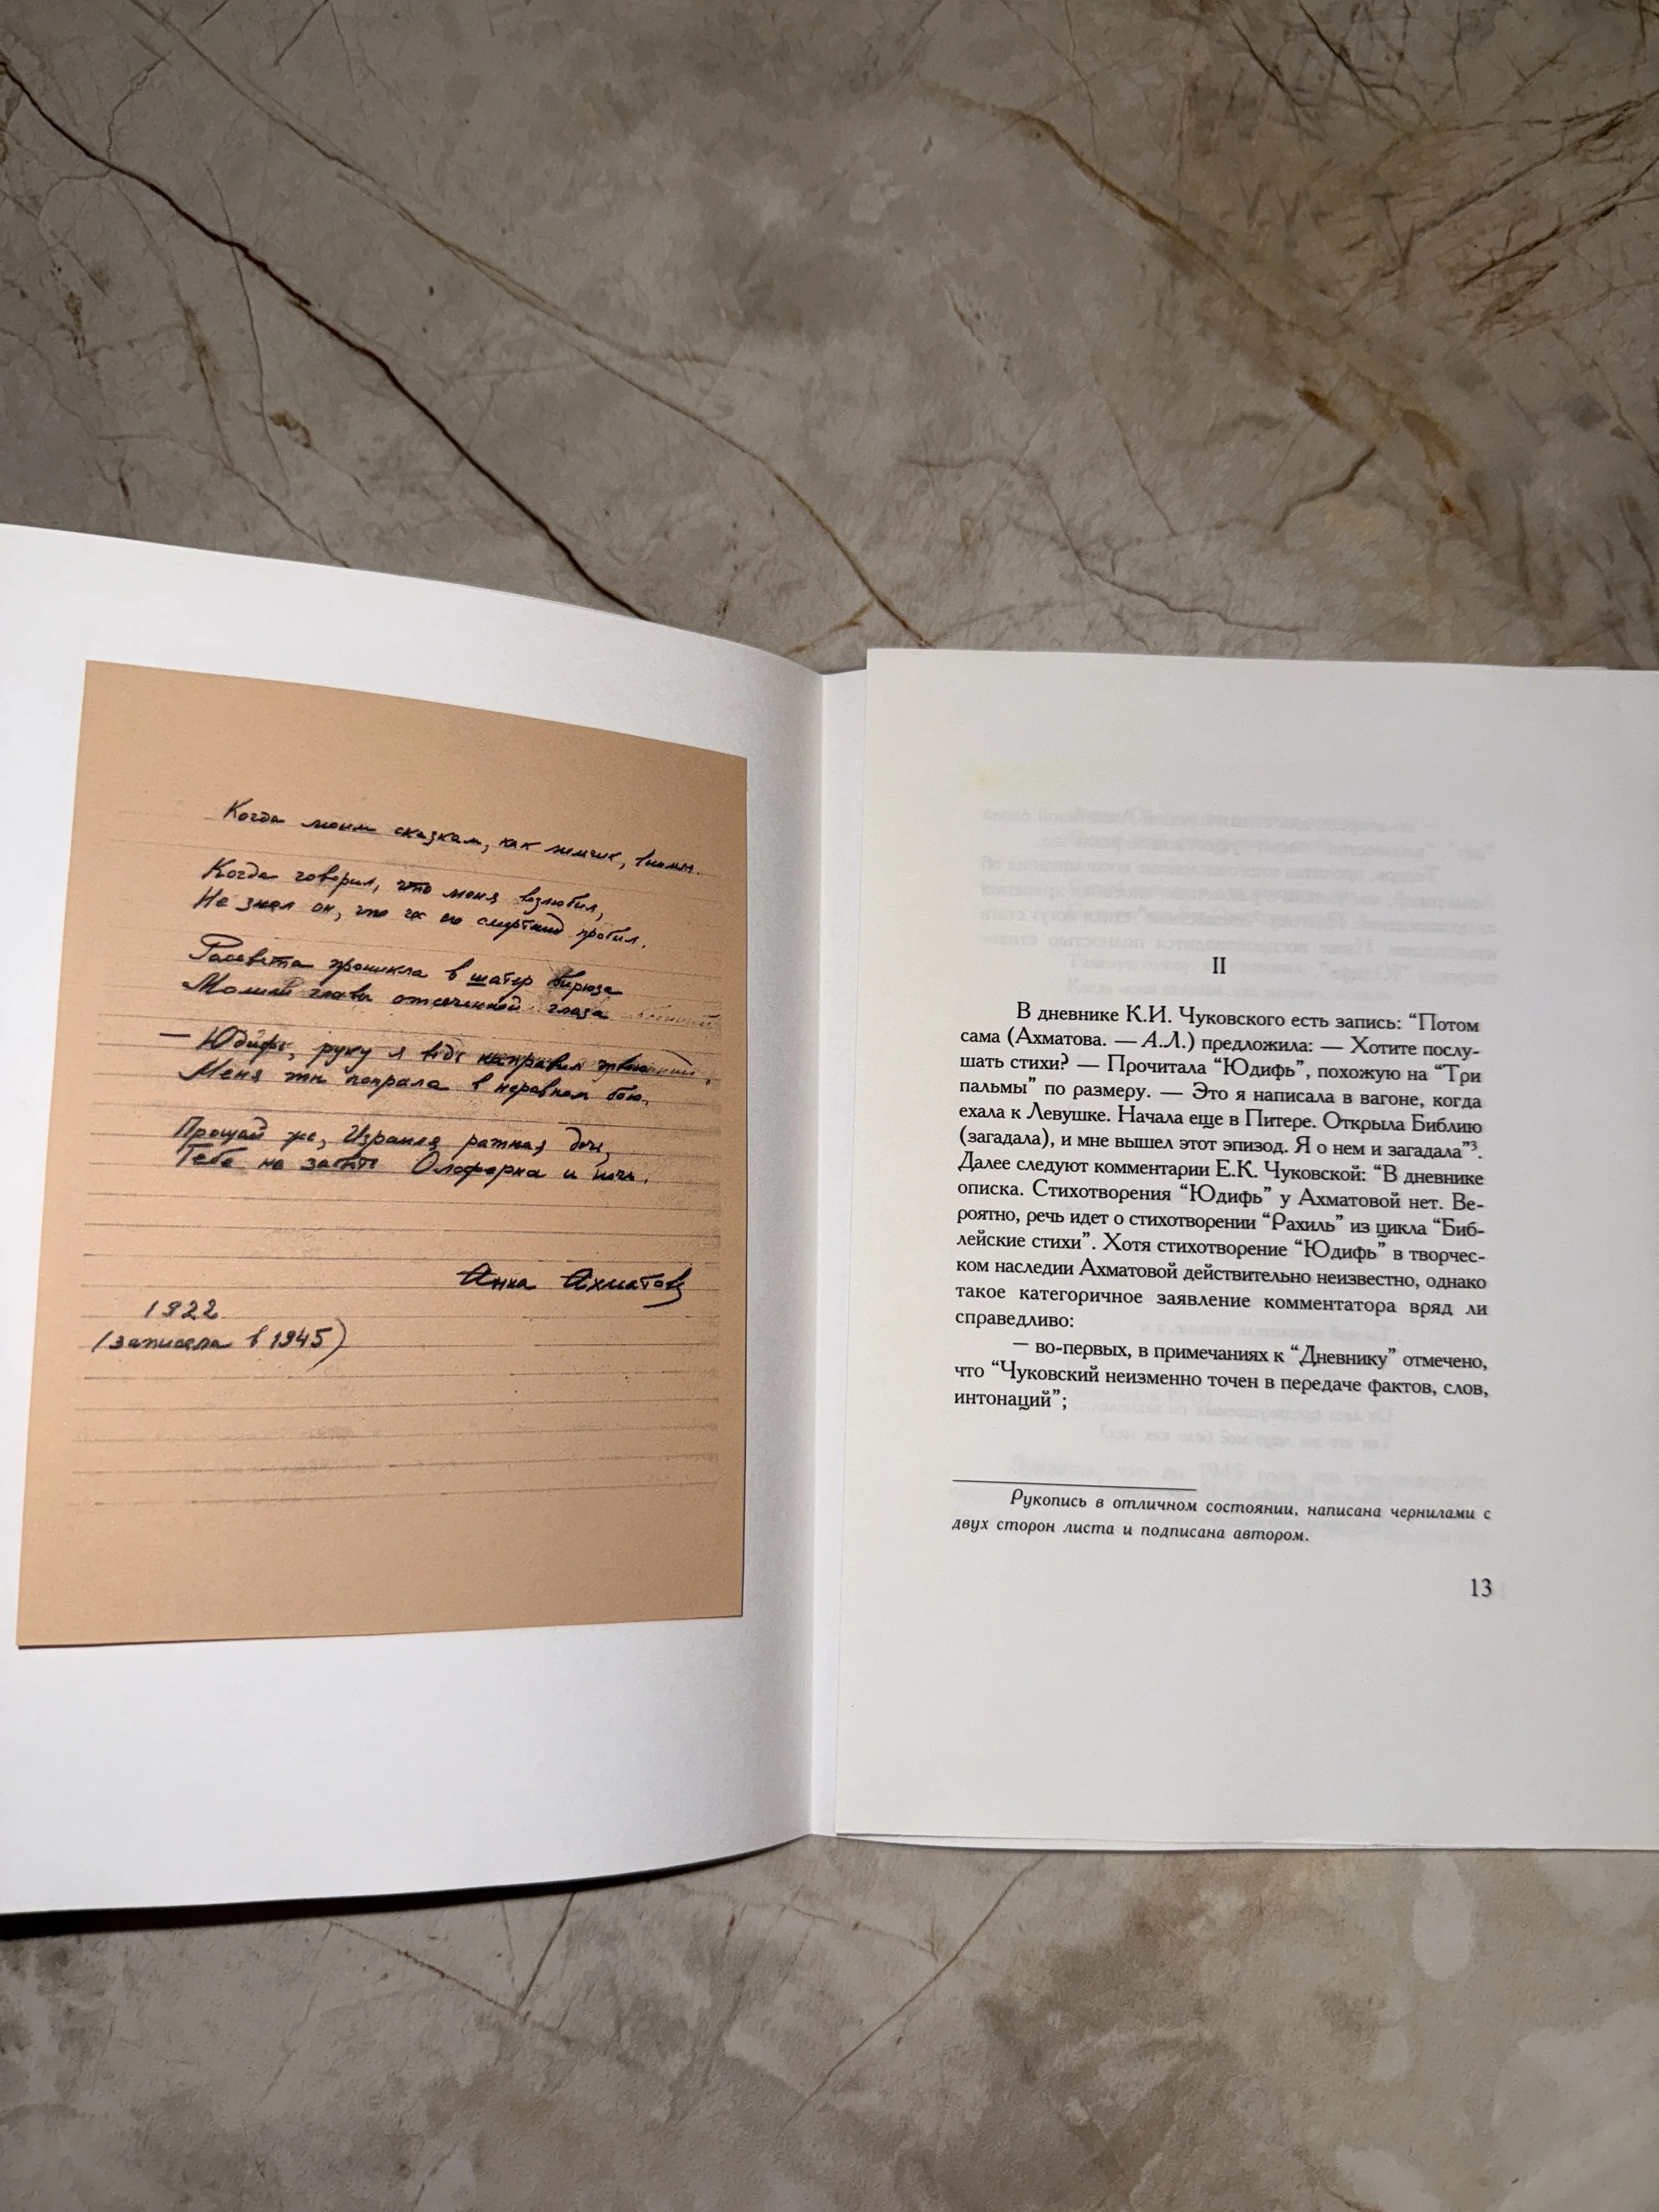 Когда моим сказкам, как , внимал.
Когда говорил, что меня возлюбил,
Не знал он, что час его смертный пробил.
Рассвета проникла в шатер бирюза
Молили главы отсеченной глаза
— Юдифь, руку я видел направил
Меня ты попрала в неравном бою.
Прощай же, Израиля ратная дочь,
Тебе не забыть Олоферна и ночь.
Анна Ахматова
1922
(записала в 1945)
II
В дневнике К.И. Чуковского есть запись: “Потом
сама (Ахматова. — А.Л.) предложила: — Хотите послу-
шать стихи? — Прочитала “Юдифь”, похожую на “Три
пальмы” по размеру. — Это я написала в вагоне, когда
ехала к Левушке. Начала еще в Питере. Открыла Библию
(загадала), и мне вышел этот эпизод. Я о нем и загадала”³.
Далее следуют комментарии Е.К. Чуковской: “В дневнике
описка. Стихотворения “Юдифь” у Ахматовой нет. Ве-
роятно, речь идет о стихотворении “Рахиль” из цикла “Биб-
лейские стихи”. Хотя стихотворение “Юдифь” в творчес-
ком наследии Ахматовой действительно неизвестно, однако
такое категоричное заявление комментатора вряд ли
справедливо:
— во-первых, в примечаниях к “Дневнику” отмечено,
что “Чуковский неизменно точен в передаче фактов, слов,
интонаций”;
Рукопись в отличном состоянии, написана чернилами с
двух сторон листа и подписана автором.
13